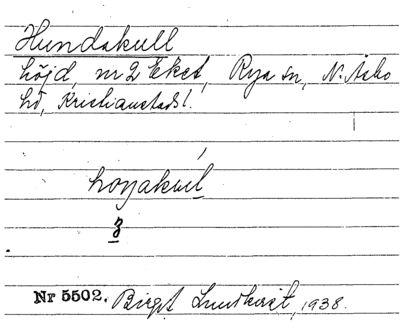 Hundakull
höjd, nr 2 Eket, Rya sn, N. Åsbo
hd, Kristianstads l.
Nr 5502. Birgit Lundkvist, 1938.